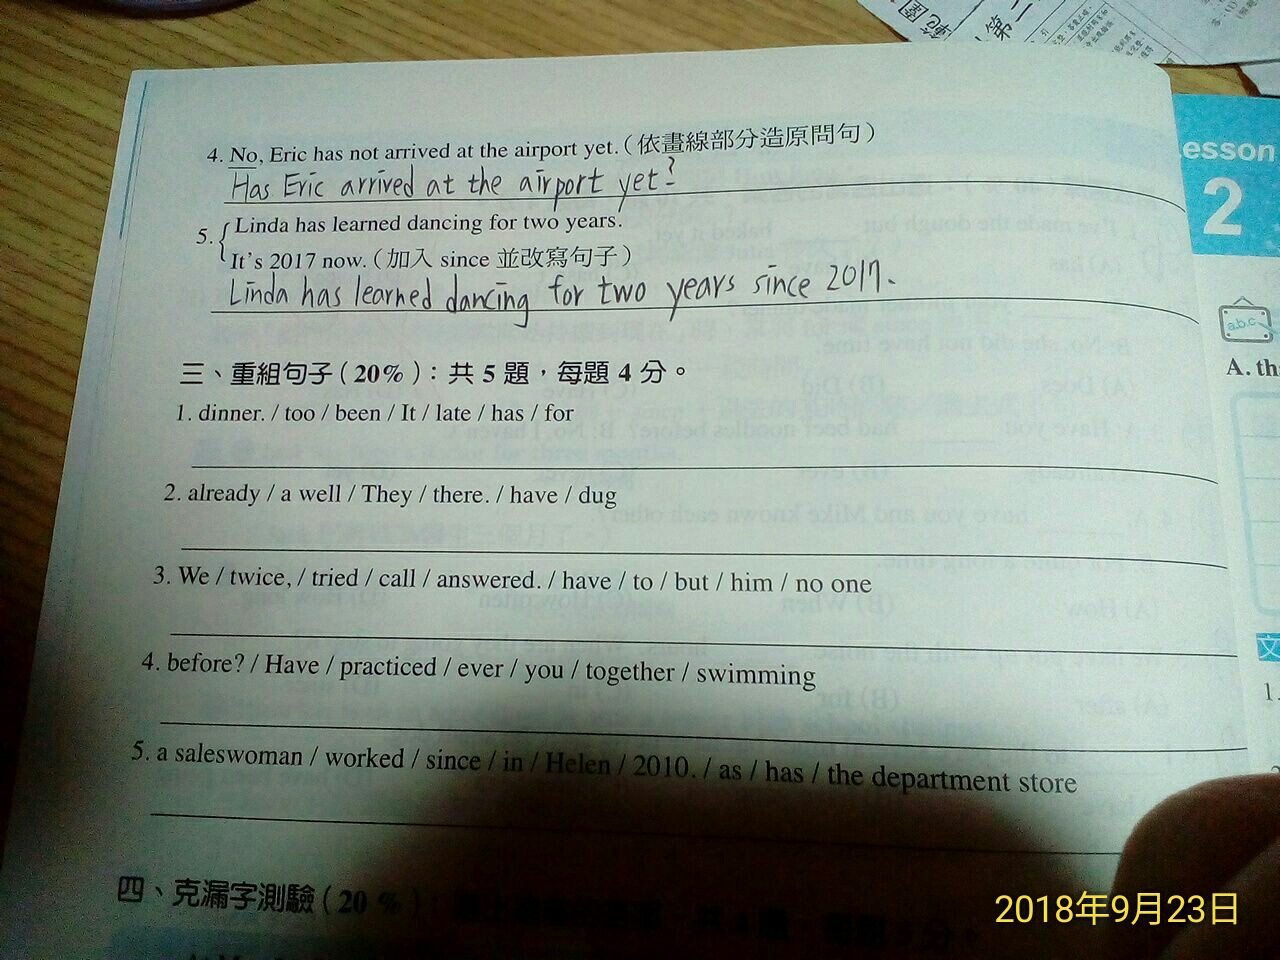 4. No, Eric has not arrived at the airport yet.（依畫線部分造原問句）
Has Eric arrived at the airport yet?
5. Linda has learned dancing for two years.
It's 2017 now.（加入 since 並改寫句子）
Linda has learned dancing for two years since 2017.
三、重組句子（20%）：共 5 題，每題 4 分。
1. dinner. / too / been / It / late / has / for
2. already / a well / They / there. / have / dug
3. We / twice, / tried / call / answered. / have / to / but / him / no one
4. before? / Have / practiced / ever / you / together / swimming
5. a saleswoman / worked / since / in / Helen / 2010. / as / has / the department store
四、克漏字測驗（20 %）
esson
2
a.b.c
A. th
文
1.
2018年9月23日